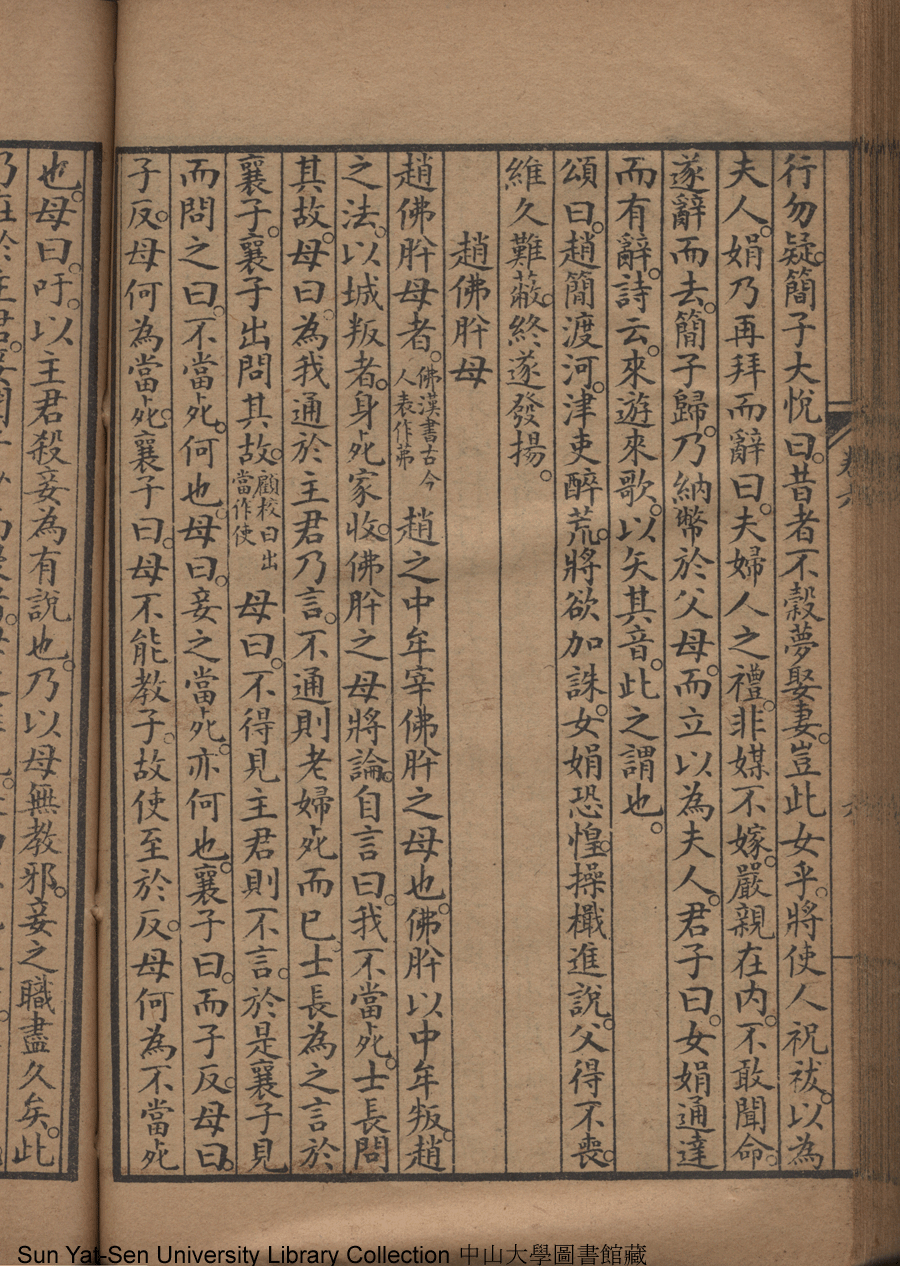 行勿疑。簡子大悅曰。昔者不糓夢娶妻。豈此女乎。將使人祝祓。以為
夫人。娟乃再拜而辭曰。夫婦人之禮。非媒不嫁。嚴親在內。不敢聞命。
遂辭而去。簡子歸。乃納幣於父母。而立以為夫人。君子曰。女娟通達
而有辭。詩云。來遊來歌。以矢其音。此之謂也。
頌曰。趙簡渡河。津吏醉荒。將欲加誅。女娟恐惶。操檝進說。父得不喪。
維久難蔽。終遂發揚。
趙佛肸母
趙佛肸母者。佛漢書古今人表作茀 趙之中牟宰佛肸之母也。佛肸以中牟叛。趙
之法。以城叛者。身死家收。佛肸之母將論。自言曰。我不當死。士長問
其故。母曰。為我通於主君乃言。不通則老婦死而已。士長為之言於
襄子。襄子出問其故。顧校曰出當作使 母曰。不得見主君則不言。於是襄子見
而問之曰。不當死。何也。母曰。妾之當死。亦何也。襄子曰。而子反。母曰。
子反。母何為當死。襄子曰。母不能教子。故使至於反。母何為不當死
也。母曰。吁。以主君殺妾為有說也。乃以母無教邪。妾之職盡久矣。此
卷六
六
Sun Yat-Sen University Library Collection 中山大學圖書館藏